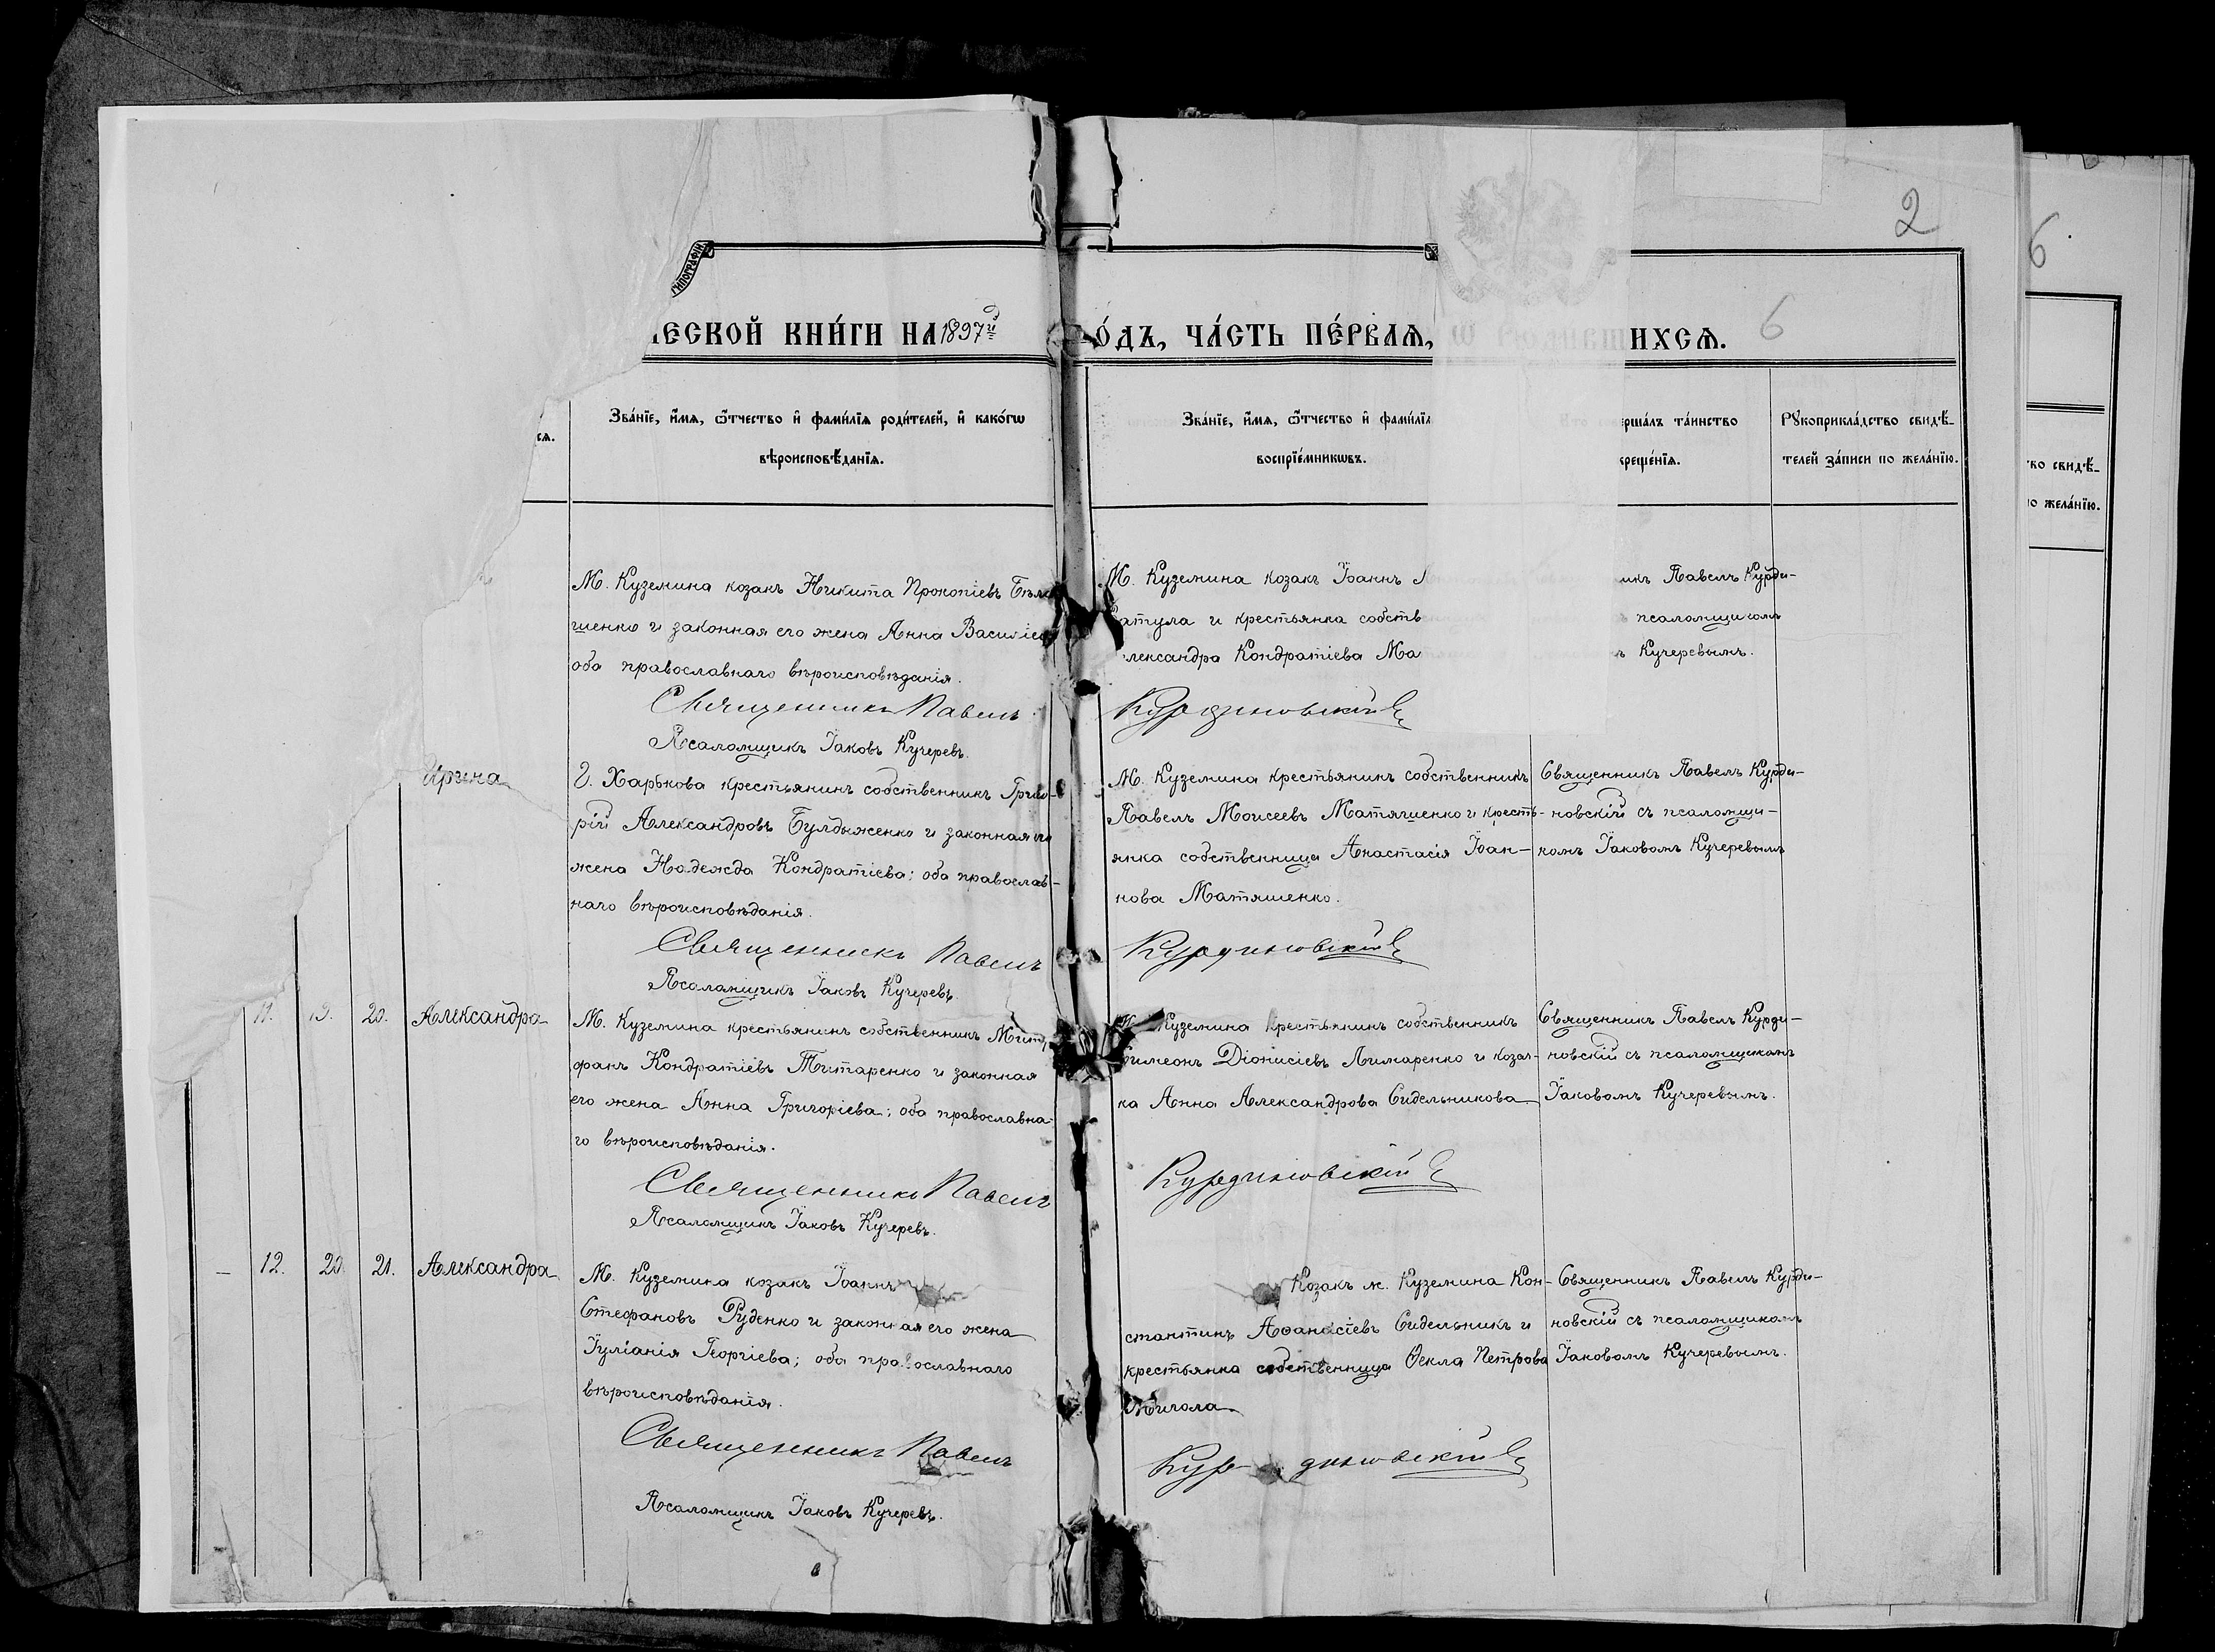 2
6
ТИПОГРАФІИ
ЧЕСКОЙ КНИ́ГИ НА 1897й
О́ДЪ, ЧА́СТЬ ПЕ́РВАѦ, Ѡ РОДИВШИХСѦ. 6
сѧ.
Зва́нїе, и҆́мѧ, ѻ҆́тчество и҆ фами́лїѧ роди́телей, и҆ како́гѡ
вѣроисповѣ́данїѧ.
Зва́нїе, и҆́мѧ, ѻ҆́тчество и҆ фами́лїѧ
воспрїе́мникѡвъ.
ерша́лъ та́инство
креще́нїѧ.
Рꙋкоприкла́дство свидѣ́-
телей за́писи по жела́нїю.
ко свидѣ́-
по жела́нїю.
М. Куземина козакъ Никита Прокопіевъ
шенко и законная его жена Анна
оба православнаго вѣроисповѣданія.
Священникъ Павелъ
Псаломщикъ Іаковъ Кучеревъ.
М. Куземина козакъ Іоаннъ
атула и крестьянка собств
лександра Кондратіева Ма
Курдиновскій
икъ Павелъ Курди-
псаломщикомъ
ъ Кучеревымъ.
Ирина
Г. Харькова крестьянинъ собственникъ Григо-
рій Александровъ Булдыженко и законная его
жена Надежда Кондратіева; оба православ-
наго вѣроисповѣданія.
Священникъ Павелъ
Псаломщикъ Іаковъ Кучеревъ.
М. Куземина крестьянинъ собственникъ
Павелъ Моисеевъ Матяшенко и кресть-
янка собственница Анастасія Іоан-
нова Матяшенко.
Курдиновскій
Священникъ Павелъ Курди-
новскій съ псаломщи-
комъ Іаковомъ Кучеревымъ
11. 19. 20. Александра
М. Куземина крестьянинъ собственникъ Митро
фанъ Кондратіевъ Титаренко и законная
его жена Анна Григоріева; оба православна-
го вѣроисповѣданія.
Священникъ Павелъ
Псаломщикъ Іаковъ Кучеревъ.
Куземина крестьянинъ собственникъ
Симеонъ Діонисіевъ Лимаренко и козач-
ка Анна Александрова Сидельникова
Курдиновскій
Священникъ Павелъ Курди-
новскій съ псаломщикомъ
Іаковомъ Кучеревымъ.
— 12. 20. 21. Александра
М. Куземина козакъ Іоаннъ
Стефановъ Руденко и законная его жена
Іуліанія Георгіева; оба православнаго
вѣроисповѣданія.
Священникъ Павелъ
Псаломщикъ Іаковъ Кучеревъ.
Козакъ м. Куземина Кон-
стантинъ Аѳанасіевъ Сидельникъ и
крестьянка собственница Ѳекла Петрова
Курдиновскій
Священникъ Павелъ Курди-
новскій съ псаломщикомъ
Іаковомъ Кучеревымъ.